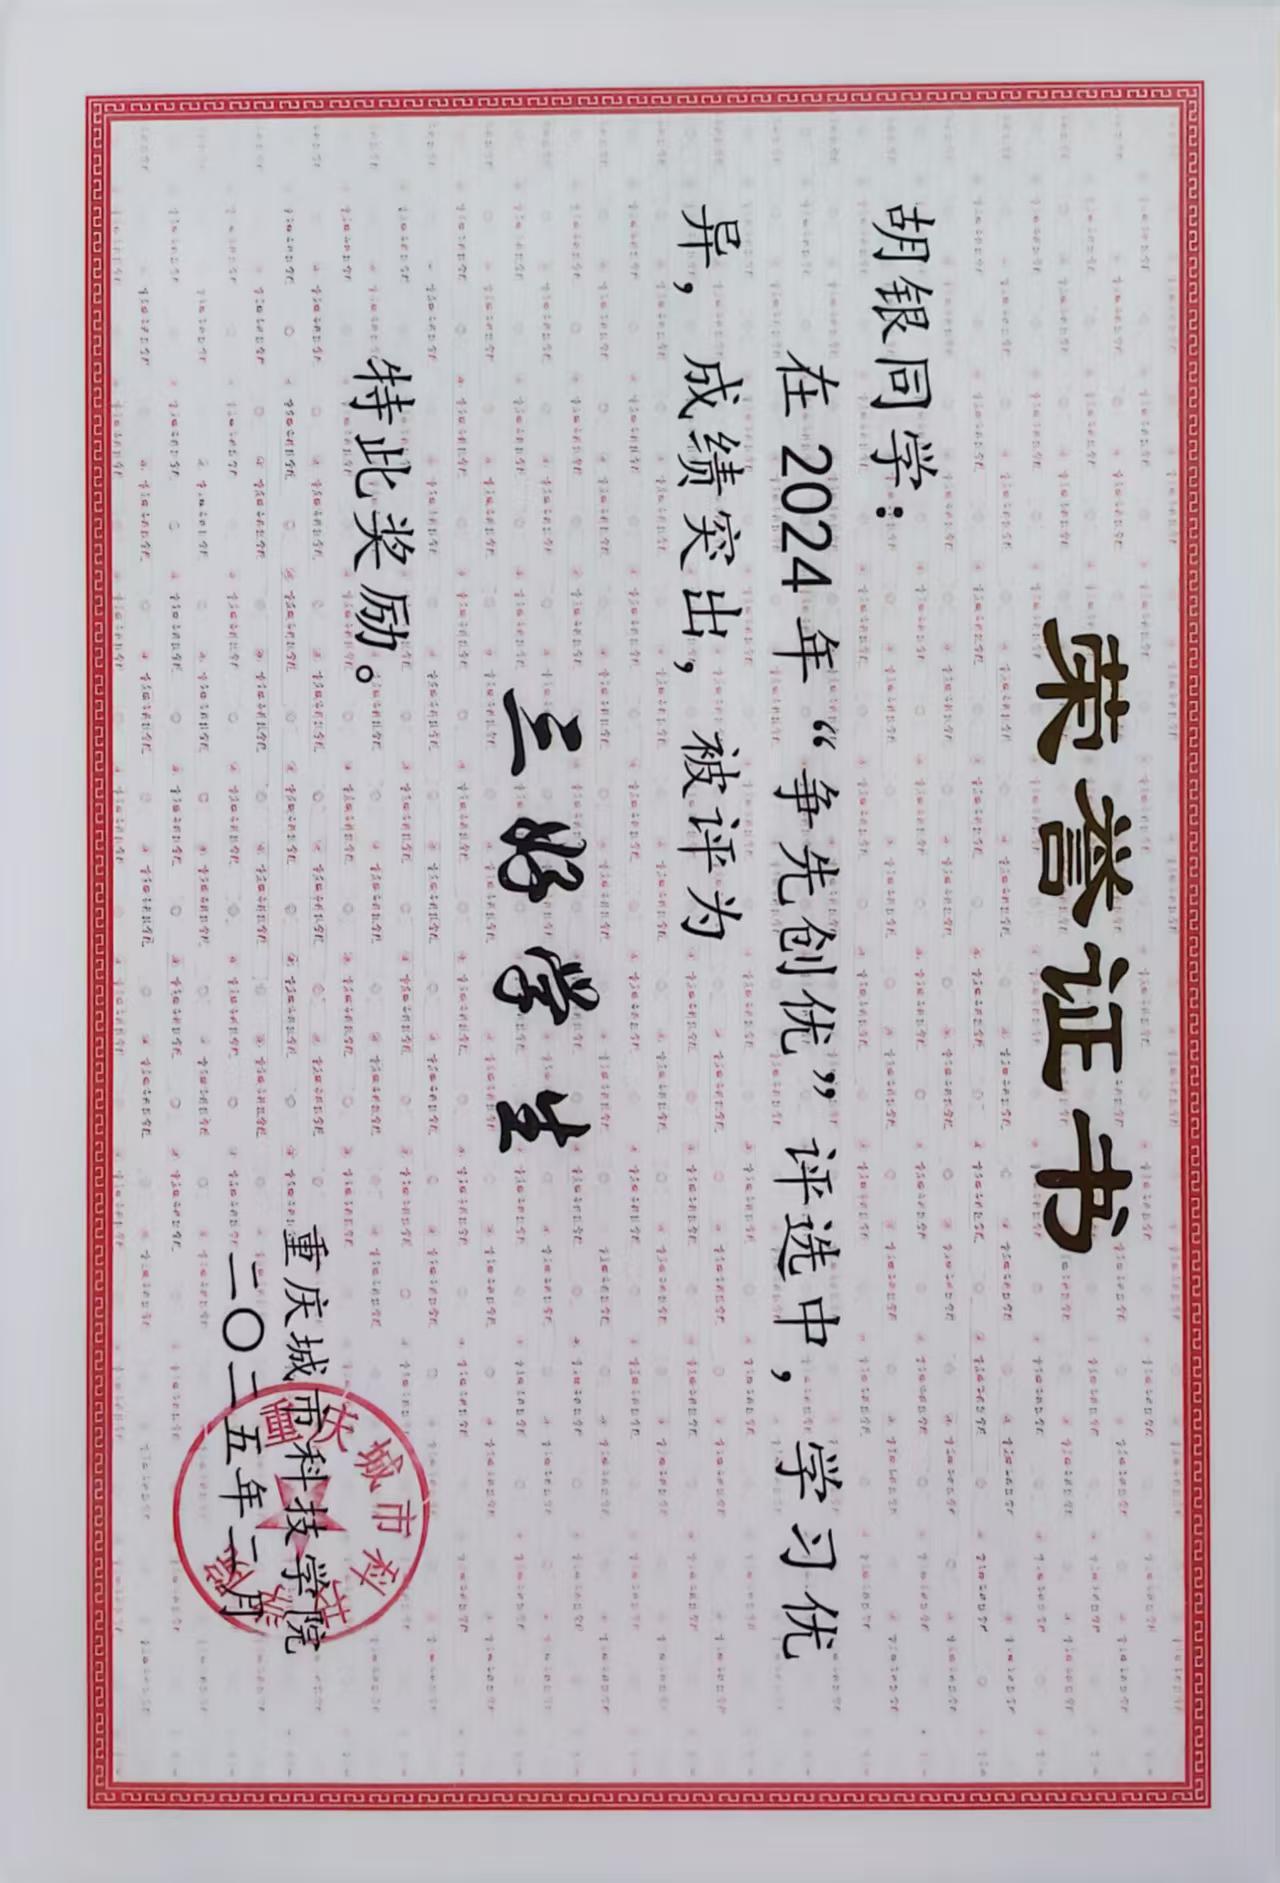 荣誉证书
胡银同学：
在2024年“争先创优”评选中，学习优
异，成绩突出，被评为
三好学生
特此奖励。
重庆城市科技学院
二〇二五年二月
重庆城市科技学院